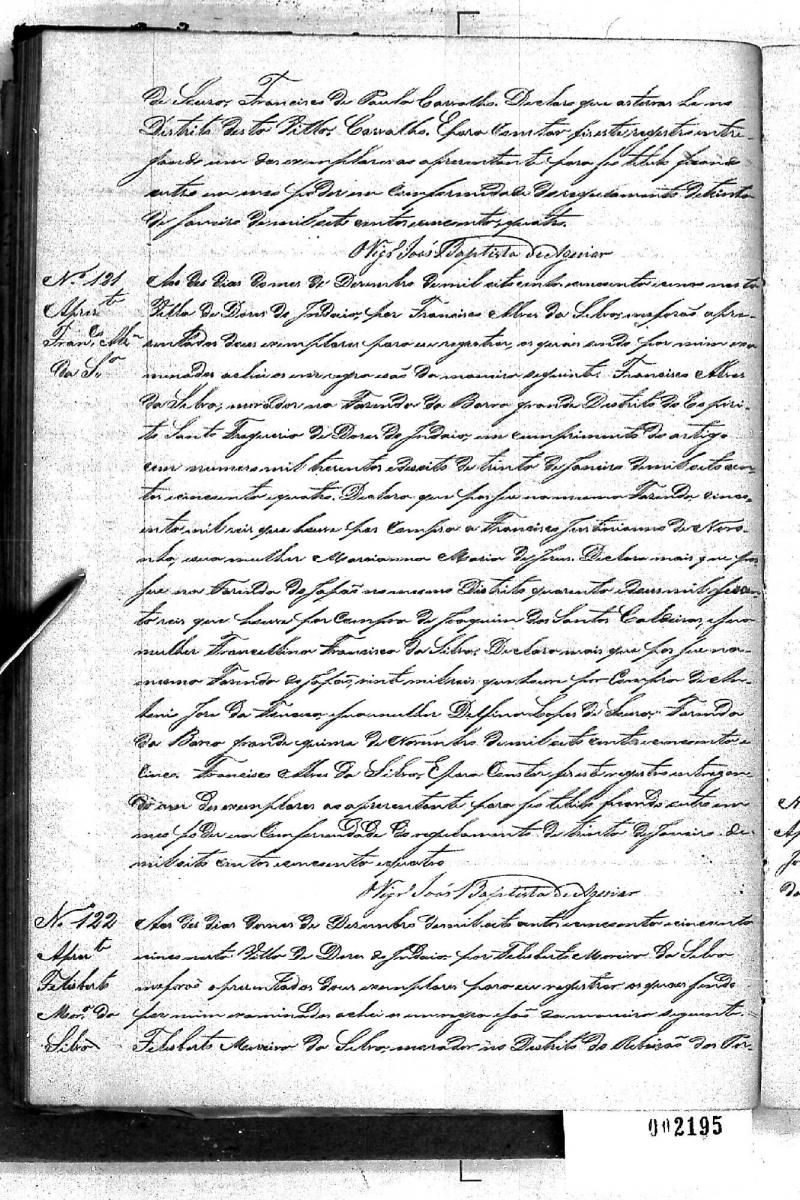 de Souza, Francisco de Paula Carvalho. Declaro que as terras he no
Districto desta Villa, Carvalho. E para constar fis este registro entre
gando um dos exemplares ao apresentante para seo titulo ficando
outro em meo poder em comformidade do regulamento de trinta
de Janeiro de mil oito centos cincoenta, quatro.
O Vigr.º João Baptista de Aguiar
N.º 121
Aprez.te
Fran.co Alz.
da S.ª
Aos des dias do mes de Dezembro de mil oito centos cincoenta e cinco nesta
Villa de Dores do Indaia, por Francisco Alves da Silva, me forão apre
sentados dous exemplares para eu registrar, os quais sendo por mim exa
minados achei os em regra e são da maneira seguinte. Francisco Alves
da Silva, morador na Fazenda da Barra grande Districto do Espiri
to Santo Freguezia de Dores do Indaia, em cumprimento do artigo
cem numero mil trezentos e dezoito de trinta de Janeiro de mil oito cen
tos cincoenta quatro. Declara que possue na mesma Fazenda cinco
enta mil reis que houve por compra a Francisco Justinianno de Noro
nha, e sua mulher Marcianna Maria de Jesus. Declara mais que pos
sue na Fazenda do Japão no mesmo Districto quarenta e dous mil
reis que houve por compra de Joaquim dos Santos e sua
mulher Francellina Francisca da Silva, Declara mais que possue na
mesma Fazenda do Japão, vinte mil reis que houve por compra de An
tonio Jose da Fonseca, e sua mulher Delfina Lopes de Souza. Fazenda
da Barra grande quinze de Novembro de mil oito centos e cincoenta e
cinco. Francisco Alves da Silva, E para constar fis este registro entregan
do um dos exemplares ao apresentante para seo titulo ficando outro em
meo poder em comformidade do regulamento de trinta de Janeiro de
mil oito centos e cincoenta e quatro
O Vigr.º João Baptista de Aguiar
N.º 122
Aprez.te
Felisberto
Mor.ª da
Silva
Aos des dias do mes de Dezembro de mil oito centos e cincoenta e cincoenta
cinco nesta Villa de Dores do Indaia, por Felisberto Moreira da Silva
me forão apresentados dous exemplares para eu registrar os quaes sendo
por mim examinados achei os em regra e são da maneira seguinte.
Felisberto Moreira da Silva, morador no Districto do Ribeirão dos Por-
002195